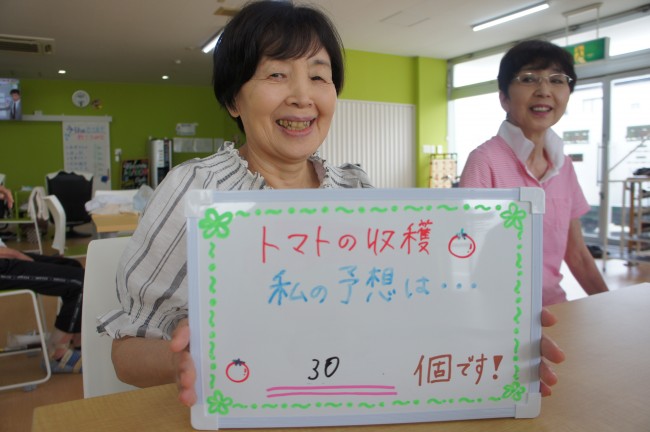 トマトの収穫
私の予想は・・・
30 個です!